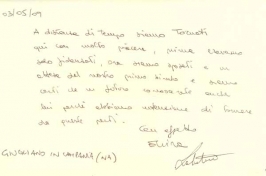 03/05/09
A distanza di tempo siamo tornati
qui con molto piacere, prima eravamo
solo fidanzati, ora siamo sposati e in
attesa del nostro primo bimbo e siamo
certi che in futuro conoscerà anche
lui perché abbiamo intenzione di tornare
da queste parti.
Con affetto
GIUGLIANO IN CAMPANIA (NA)